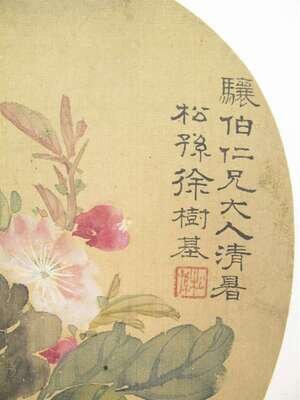 驤伯仁兄大人清暑
松孫徐樹基